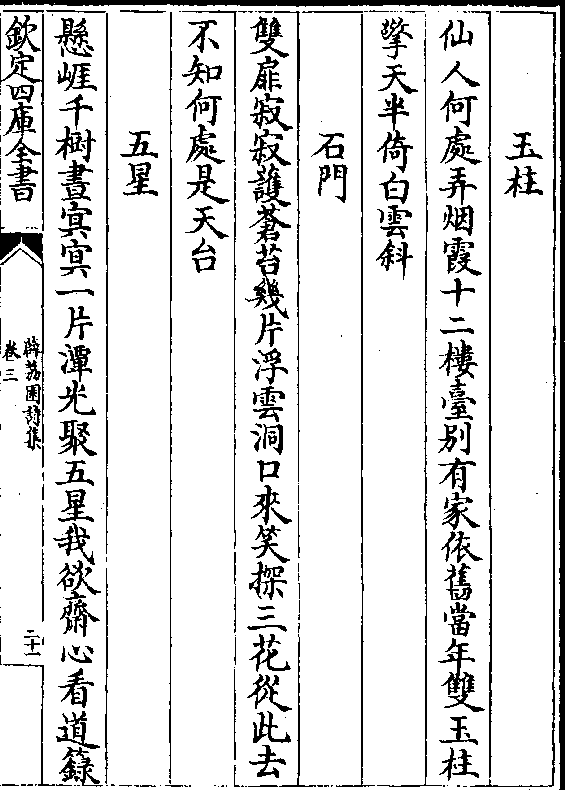 玉柱
仙人何處弄烟霞十二樓臺别有家依舊當年雙玉柱
擎天半倚白雲斜
石門
雙扉寂寂護蒼苔幾片浮雲洞口來笑探三花從此去
不知何處是天台
五星
懸崖千樹晝㝠㝠一片潭光聚五星我欲齋心看道籙
欽定四庫全書
薜荔園詩集
卷三
二十一